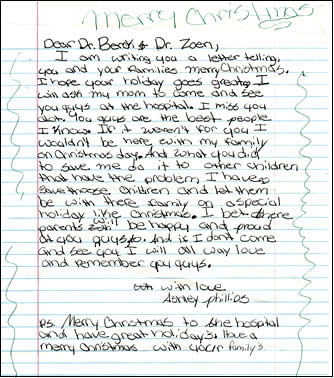 Merry Christmas
Dear Dr. Berdi & Dr. Zoen,
I am writing you a letter telling,
you and your families merry Christmas.
I hope your holiday goes great, I
will ask my mom to come and see
you guys at the hospital. I miss you
alot. You guys are the best people
I know. If it weren't for you I
wouldn't be here with my family
on Christmas day. And what you did
to save me do it to other children
that have the problem I have,
save those children and let them
be with there family on a special
holiday like Christmas. I bet there
parents will be happy and proud
at you guys to. And is I don't come
and see you I will all way love
and remember you guys.
with love
Ashley Phillips
P.S. Merry Christmas to the hospital
and have great holiday's. Have a
merry Christmas with your family's.